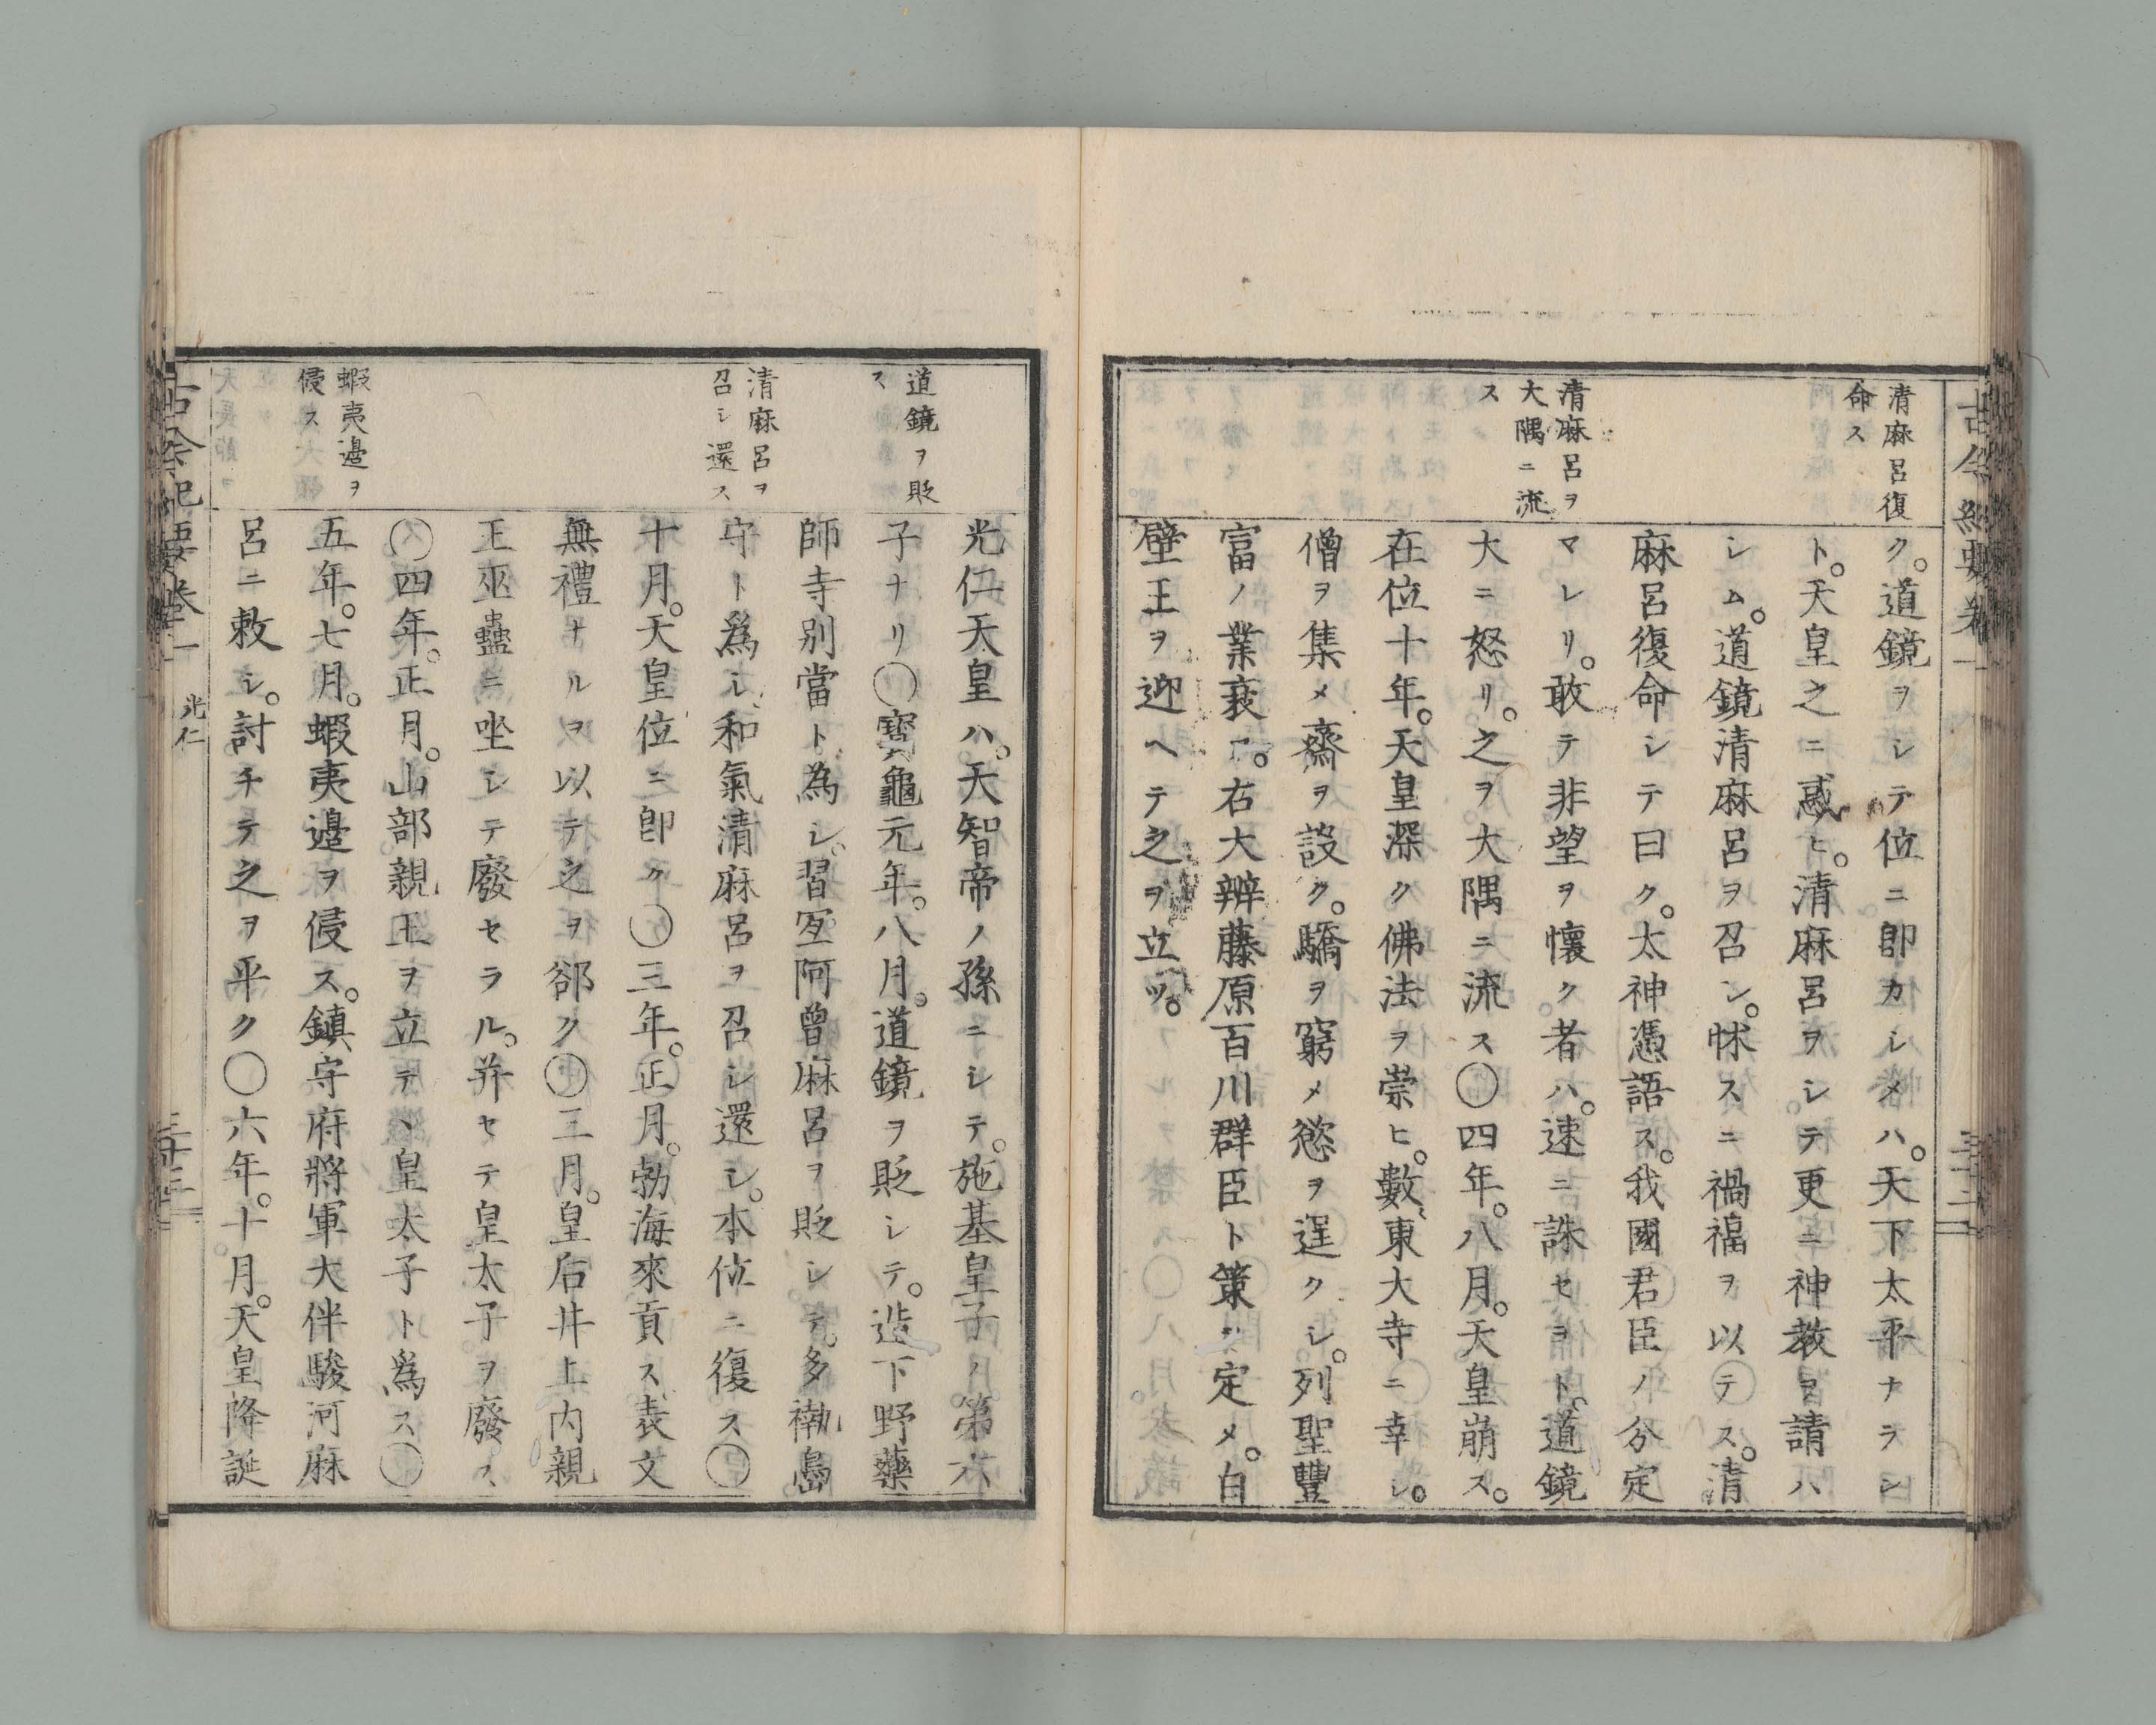 古今紀要卷一
三十二
清麻呂復
命ス
清麻呂ヲ
大隅ニ流
ス
ク。道鏡ヲシテ位ニ卽カシメハ。天下太平ナラン
ト。天皇之ニ惑ヒ。清麻呂ヲシテ更ニ神教ヲ請ハ
シム。道鏡清麻呂ヲ召シ。怵スニ禍福ヲ以テス。清
麻呂復命シテ曰ク。太神憑語ス。我國君臣ノ分定
マレリ。敢テ非望ヲ懷ク者ハ。速ニ誅セヨト。道鏡
大ニ怒リ。之ヲ大隅ニ流ス〇四年。八月。天皇崩ス。
在位十年。天皇深ク佛法ヲ崇ヒ。數東大寺ニ幸シ。
僧ヲ集メ齋ヲ設ク。驕ヲ窮メ慾ヲ逞クシ。列聖豐
富ノ業衰フ。右大辨藤原百川群臣ト策ヲ定メ。白
壁王ヲ迎ヘテ之ヲ立ツ。
道鏡ヲ貶
ス
清麻呂ヲ
召シ還ス
蝦夷邊ヲ
侵ス
光仁天皇ハ。天智帝ノ孫ニシテ。施基皇子ノ第六
子ナリ〇寶龜元年。八月。道鏡ヲ貶シテ。造下野藥
師寺別當ト為シ。習宜阿曾麻呂ヲ貶シテ。多褹島
守ト爲シ、和氣清麻呂ヲ召シ還シ。本位ニ復ス〇
十月。天皇位ニ卽ク〇三年。正月。勃海來貢ス表文
無禮ナルヲ以テ之ヲ郤ク〇三月。皇后井上内親
王巫蠱ニ坐シテ廢セラル。并セテ皇太子ヲ廢ス
〇四年。正月。山部親王ヲ立テヽ皇太子ト爲ス〇
五年。七月。蝦夷邊ヲ侵ス。鎮守府將軍大伴駿河麻
呂ニ敕シ。討チテ之ヲ平ク〇六年。十月。天皇降誕
古今紀要卷一
光仁
三十三